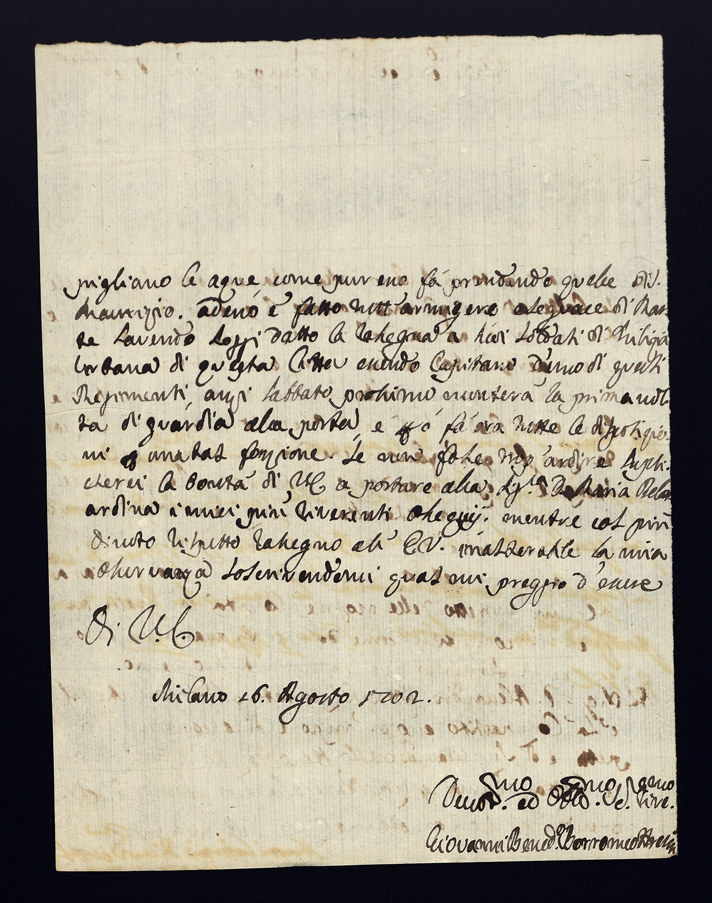 pigliano le aque come pur eno fà prendendo quelle di S.
Maurizio. adeno è fatto tutt armigero a seguace di Mar-
te havendo oggi datto la rasegna a suoi soldati di Miligia
Urbana di questa Citta essendo Capitano d'uno di questi
Regimenti, anzi sabbato prossimo monterà la prima vol-
ta di guardia alla porta, e fa ora tutte le dispositio-
ni una tal fonzione. Se non fosse trop ardire supli-
cherei la bontà di V.E. a portare alla Sig.ra D. Maria Bela
ardina i miei più riverenti ossequij. mentre col più
divoto rispetto rasegno all' E.V. inalterabile la mia
osservanza soscrivendomi qual mi preggio d'essere
Di V.E.
Milano 16. Agosto 1702.
Devot.mo ed Obb.mo Se.
Giovanni Bened. Borromeo Arese